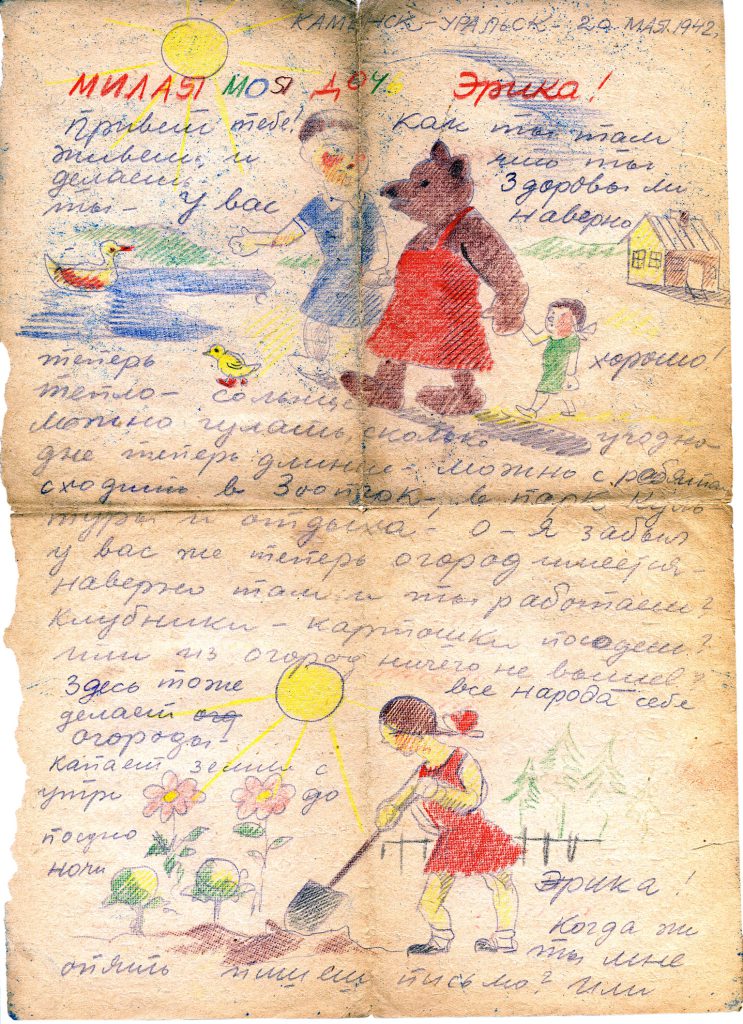 КАМЕНСК-УРАЛЬСК - 29 МАЯ 1942.
МИЛАЯ МОЯ ДОЧЬ Эрика!
Привет тебе! Как ты там
живешь и что ты
делаешь Здоровы ли
ты - У вас наверно
теперь хорошо!
тепло - сольнце
можно гулять сколько угодно
дне теперь длинне - можно с ребята
сходить в Зоопарк, в парк куль
туры и отдыха - О-я забыл
у вас же теперь огород имеется -
наверно там и ты работаеш?
Клубники - картошки посадеш?
Или из огород ничего не вышел?
Здесь тоже все народа себе
делает ог
огороды -
капает земли с
утра до
поздно
ночи
Эрика!
Когда же
ты мне
опять пишеш письмо? Или